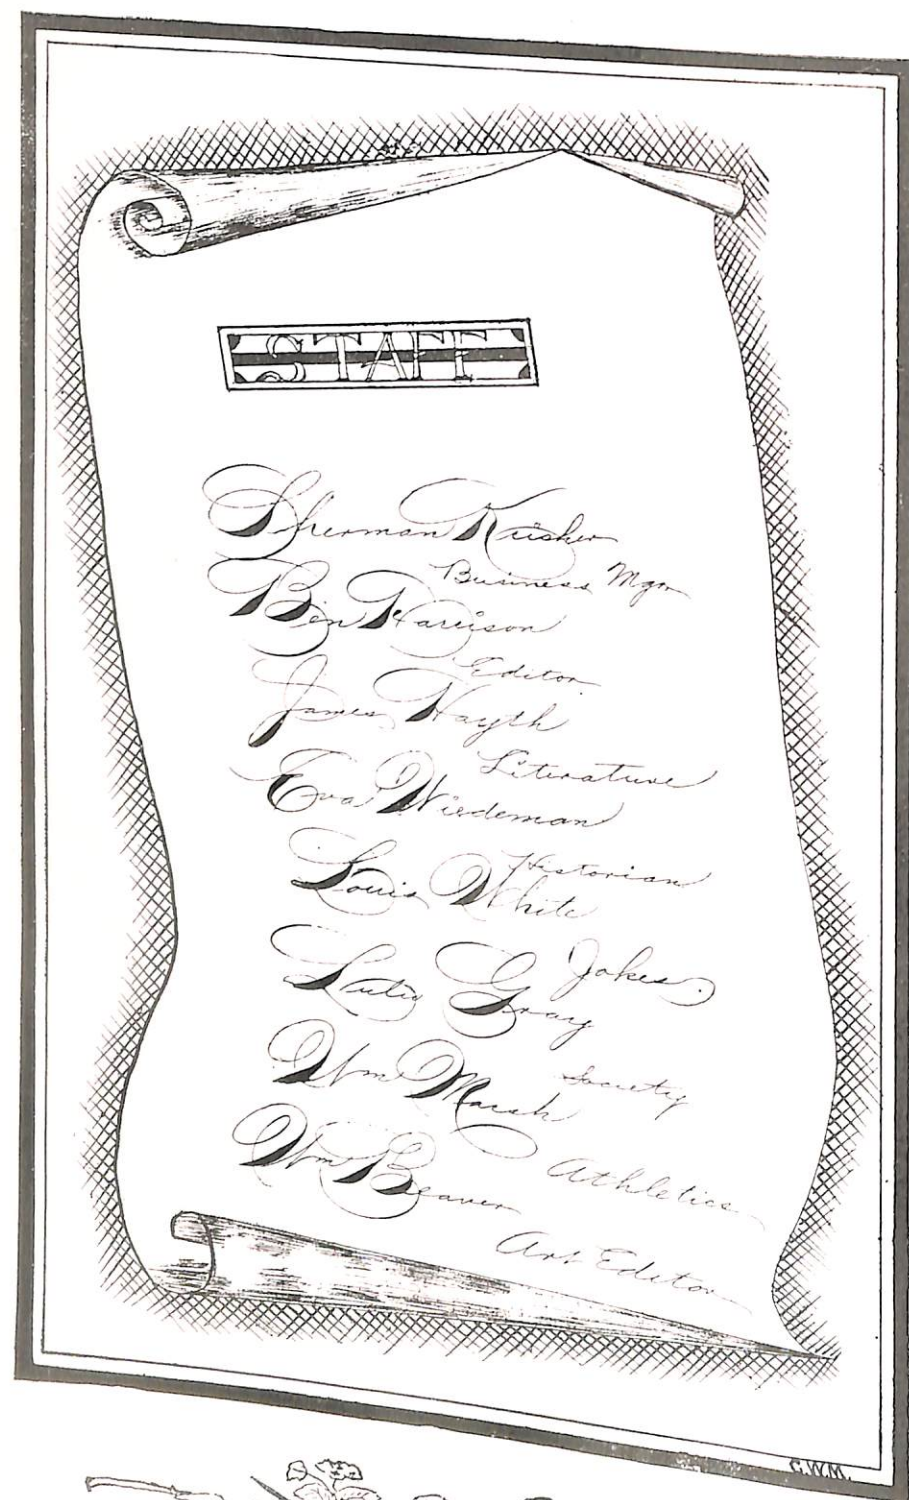 STAFF
Sherman Krisher
Business Mgr
Ben Harrison
Editor.
James Hayth
Literature
Eva Wiedeman
Historian
Louis White
Jokes.
Gray
Society
Wm Marsh
Athletics
Wm Beaver
Art Editor
C.W.M.